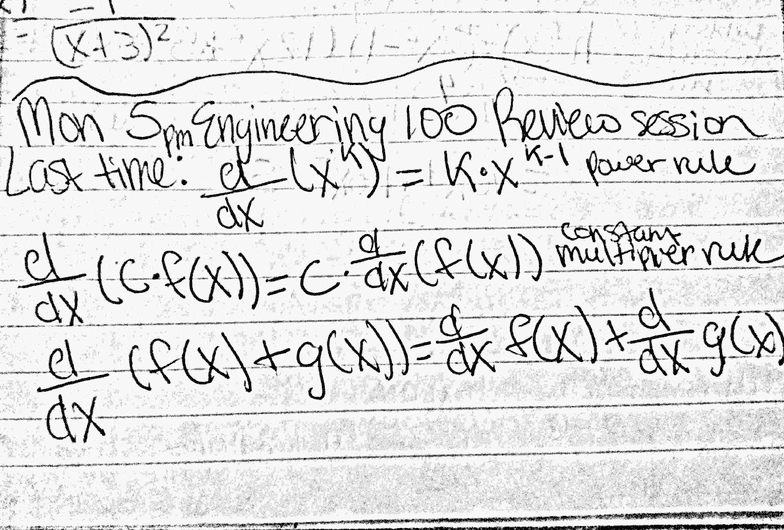 = -1/(x+3)²
Mon 5pm Engineering 100 Review session
Last time: d/dx (x^k) = k·x^(k-1) power rule
d/dx (c·f(x)) = c · d/dx (f(x)) constant multiplier rule
d/dx (f(x) + g(x)) = d/dx f(x) + d/dx g(x)